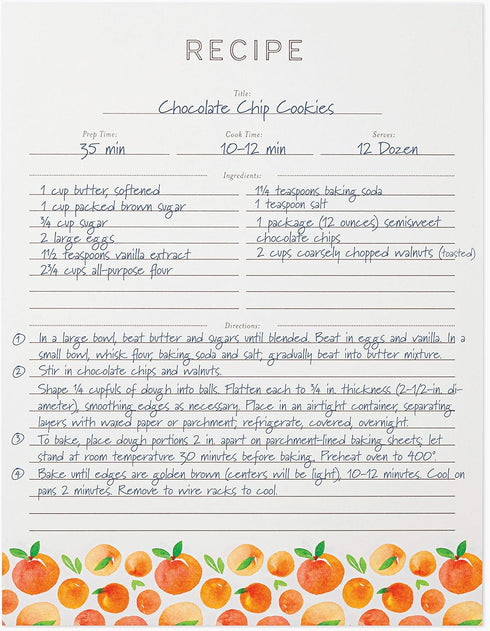 RECIPE
Title:
Chocolate Chip Cookies
Prep Time: Cook Time: Serves:
35 min 10-12 min 12 Dozen
Ingredients:
1 cup butter, softened
1 cup packed brown sugar
3/4 cup sugar
2 large eggs
1 1/2 teaspoons vanilla extract
2 3/4 cups all-purpose flour
1 1/4 teaspoons baking soda
1 teaspoon salt
1 package (12 ounces) semisweet
chocolate chips
2 cups coarsely chopped walnuts (toasted)
Directions:
① In a large bowl, beat butter and sugars until blended. Beat in eggs and vanilla. In a
small bowl, whisk flour, baking soda and salt; gradually beat into butter mixture.
② Stir in chocolate chips and walnuts.
Shape 1/4 cupfuls of dough into balls. Flatten each to 3/4 in. thickness (2-1/2-in. di-
ameter), smoothing edges as necessary. Place in an airtight container, separating
layers with waxed paper or parchment; refrigerate, covered, overnight.
③ To bake, place dough portions 2 in. apart on parchment-lined baking sheets; let
stand at room temperature 30 minutes before baking. Preheat oven to 400°.
④ Bake until edges are golden brown (centers will be light), 10-12 minutes. Cool on
pans 2 minutes. Remove to wire racks to cool.